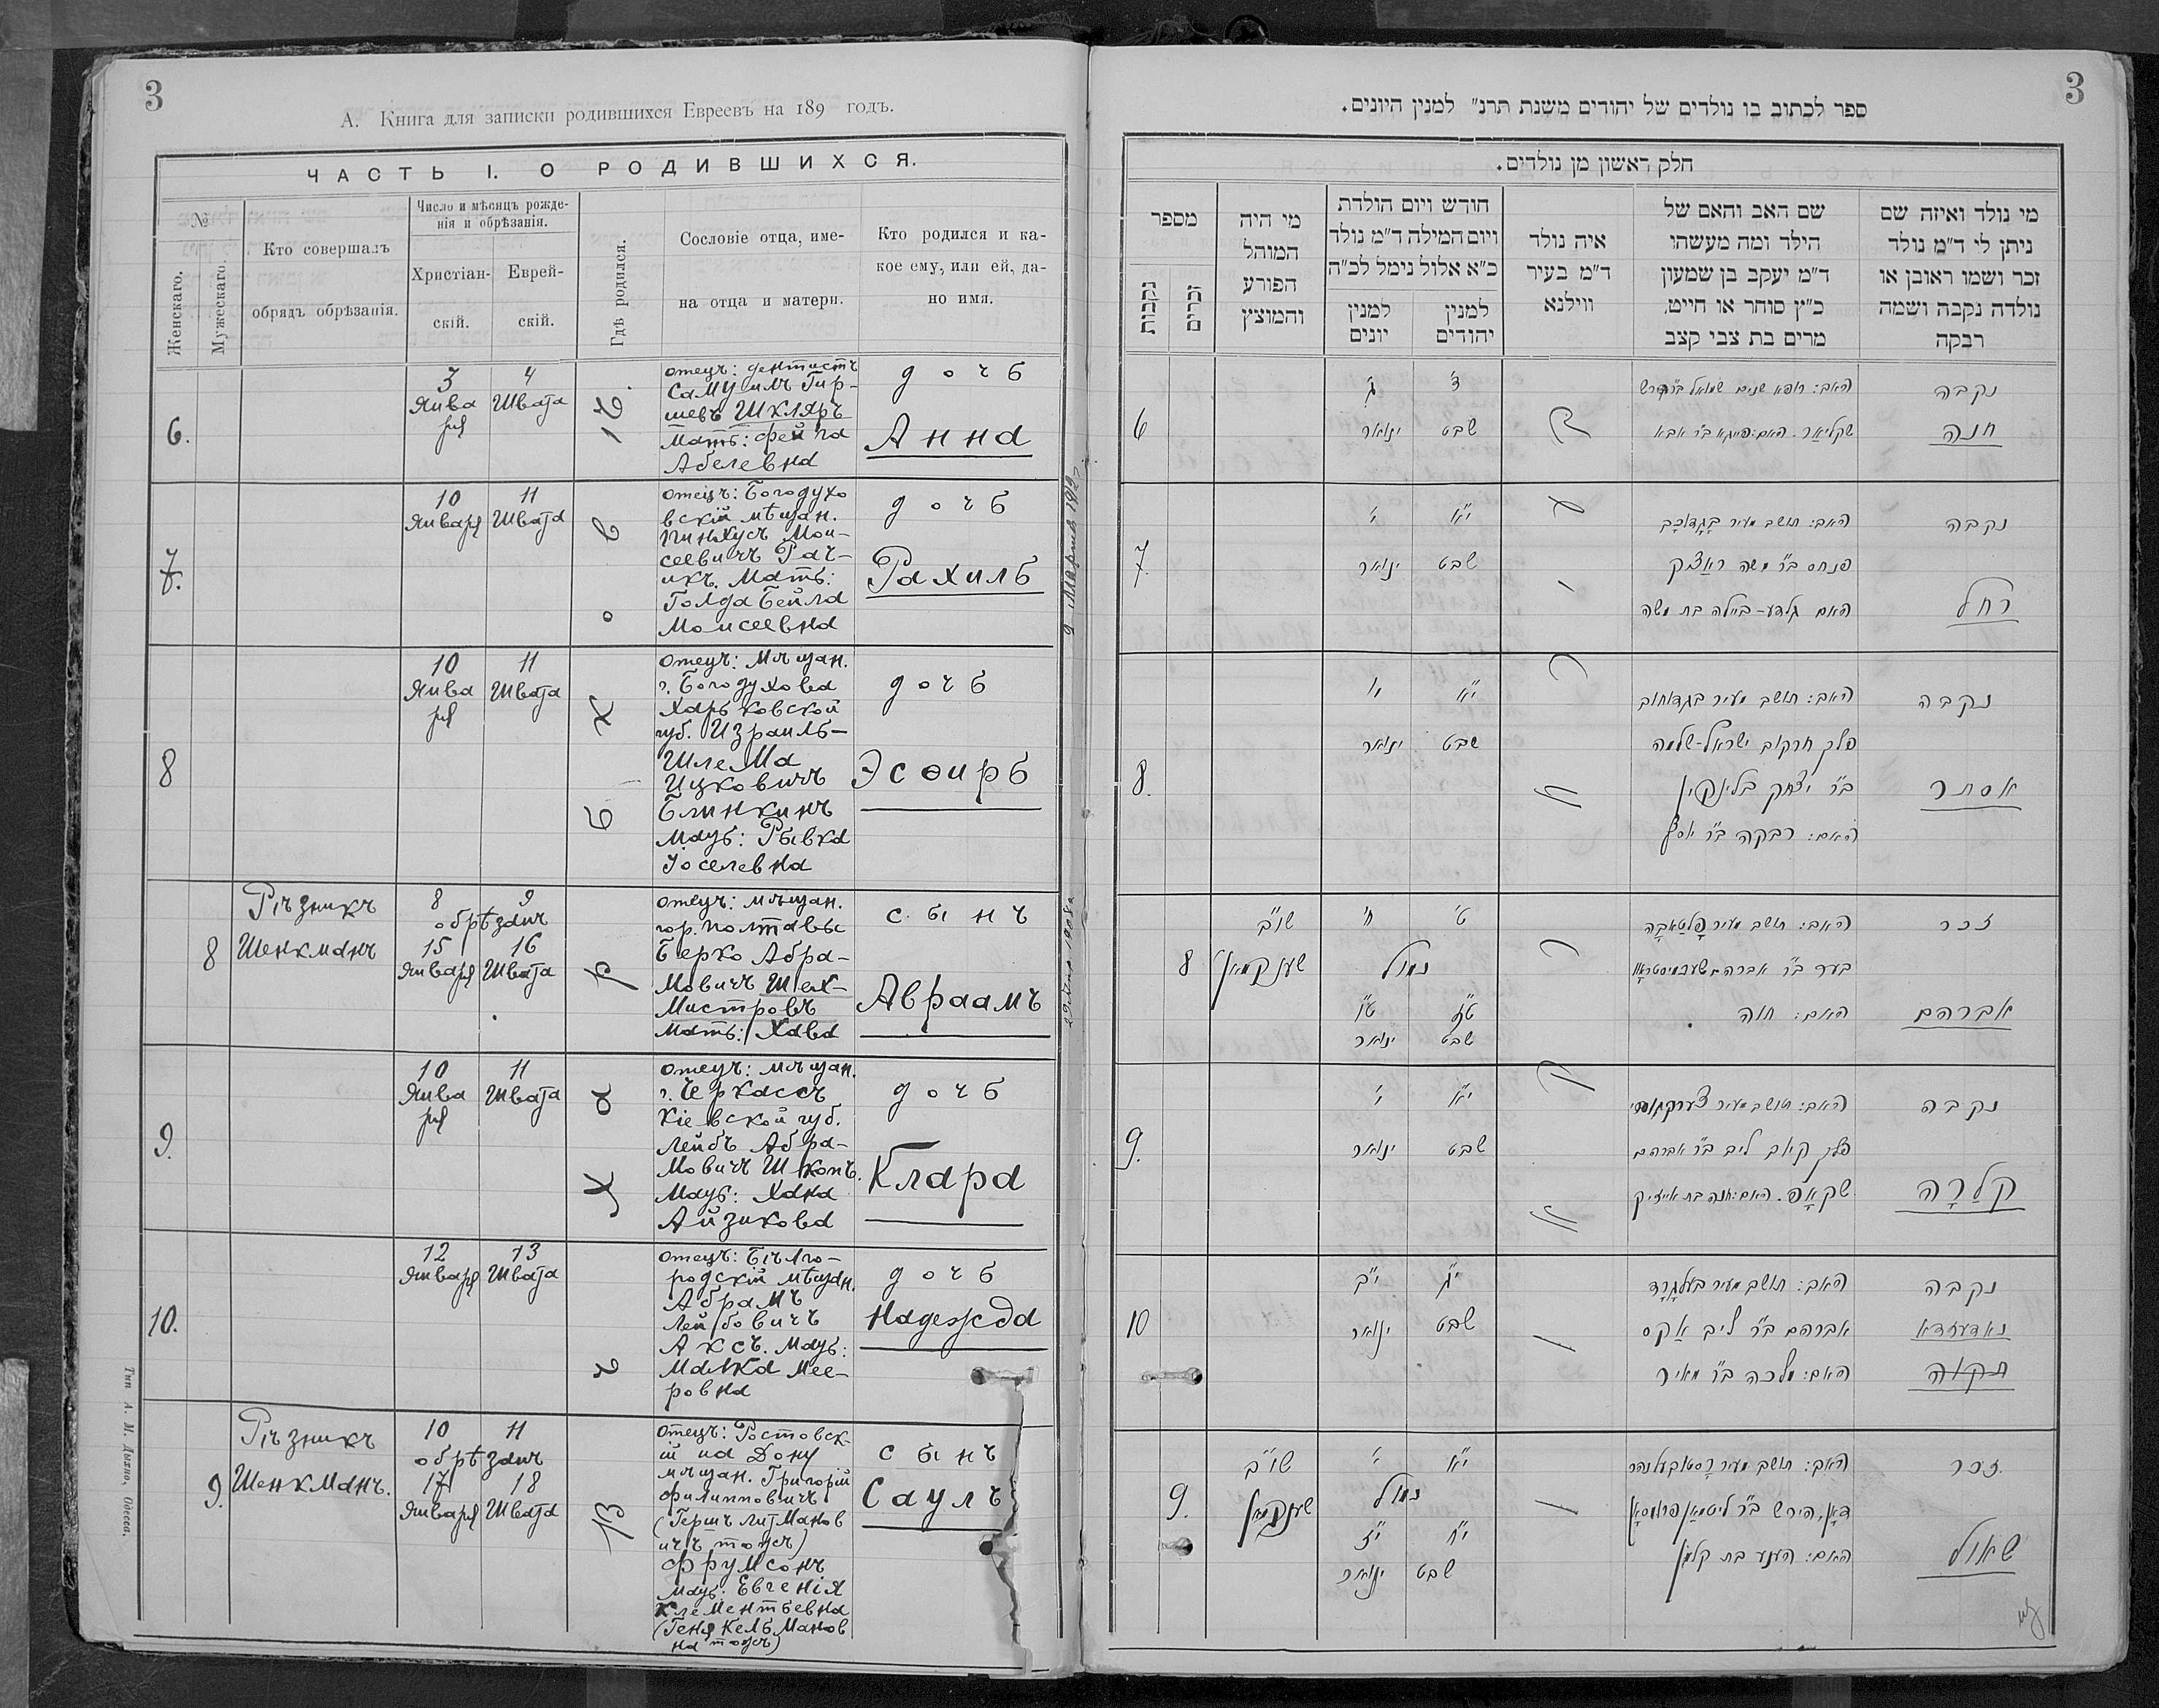 3
А. Книга для записки родившихся Евреевъ на 189 годъ.
ЧАСТЬ I. О РОДИВШИХСЯ.
№
Женскаго.
Мужескаго.
Кто совершалъ
обрядъ обрѣзанія.
Число и мѣсяцъ рожде-
нія и обрѣзанія.
Христіан-
скій.
Еврей-
скій.
Гдѣ родился.
Сословіе отца, име-
на отца и матери.
Кто родился и ка-
кое ему, или ей, да-
но имя.
6.
3
Янва
ря
4
Швата
отецъ: дентистъ
Самуилъ Гир-
шевъ Шкляръ
Мать: Фейга
Абелевна
дочь
Анна
7.
10
Января
11
Швата
отецъ: Богодухо
вскій мѣщан.
Пинхусъ Мои-
сеевичъ Рач-
икъ. Мать:
Голда Бейла
Моисеевна
дочь
Рахиль
8
10
Янва
ря
11
Швата
отецъ: Мѣщан.
г. Богодухова
Харьковской
губ. Израиль-
Шлема
Ицковичъ
Блинкинъ
Мать: Рывка
Іоселевна
дочь
Эсѳирь
8
Рѣзникъ
Шенкманъ
8 9
обрѣзанъ
15 16
Января Швата
отецъ: мѣщан.
гор. Полтавы
Берко Абра-
мовичъ Шех-
мистровъ
Мать: Хава
сынъ
Авраамъ
9.
10
Янва
ря
11
Швата
отецъ: мѣщан.
г. Черкассъ
Кіевской губ.
Лейбъ Абра-
мовичъ Шкопъ.
Мать: Хана
Айзикова
дочь
Клара
10.
12
Января
13
Швата
отецъ: Бѣлго-
родскій мѣщан.
Абрамъ
Лейбовичъ
Аксъ. Мать:
Малка Мее-
ровна
дочь
Надежда
9.
Рѣзникъ
Шенкманъ.
10 11
обрѣзанъ
17 18
Января Швата
отецъ: Ростовск-
ій на Дону
мѣщан. Григорій
Филипповичъ
(Гершъ Литманов
ичъ тожъ)
Фрумсонъ
Мать: Евгенія
Клементьевна
(Геня Кельманов
на тожъ)
сынъ
Саулъ
Тип. А. М. Дыхно, Одесса.
3
ספר לכתוב בו נולדים של יהודים משנת תרנ״ למנין היונים.
חלק ראשון מן נולדים.
מספר
נקבות
זכרים
מי היה
המוהל
הפורע
והמוצץ
חודש ויום הולדת
ויום המילה ד״מ נולד
כ״א אלול נימל לכ״ה
למנין
יונים
למנין
יהודים
איה נולד
ד״מ בעיר
ווילנא
שם האב והאם של
הילד ומה מעשהו
ד״מ יעקב בן שמעון
כ״ץ סוחר או חייט,
מרים בת צבי קצב
מי נולד ואיזה שם
ניתן לי ד״מ נולד
זכר ושמו ראובן או
נולדה נקבה ושמה
רבקה
6
ג׳
ינואר
ד׳
שבט
נקבה
חנה
7.
י׳
ינואר
י״א
שבט
האב: תושב מעיר
פנחס ב״ר משה ראַציק
האם גלדע-ביילה בת משה
נקבה
רחל
8.
ינואר
י״א
שבט
האב: תושב מעיר בגדוחוב
פלך חרקוב ישראל-שלמה
ב״ר יצחק בלינקין
האם: רבקה ב״ר
נקבה
אסתר
8
שו״ב
שענקמאן
ח׳ ט׳
נמול
ט״ו ט״ז
ינואר שבט
האב: תושב מעיר
בער ב״ר אברהם
האם: חוה
זכר
אברהם
9.
י׳
ינואר
י״א
שבט
האב: תושב מעיר
פלך קיוב ליב ב״ר אברהם
שקאָפ. האם: חנה בת אייזיק
נקבה
קלַרָה
10
י״ב
ינואר
י״ג
שבט
האב: תושב מעיר בעלגרָד
אברהם ב״ר ליב אַקס
האם: מלכה ב״ר מאיר
נקבה
נאדעזדא
תקוה
9.
שו״ב
שענקמאן
י׳ י״א
נמול
י״ז י״ח
ינואר שבט
האב: תושב מעיר
דאָן, הירש ב״ר ליטמאַן פרומסאָן
האם: הענע בת קלמן
זכר
שאול